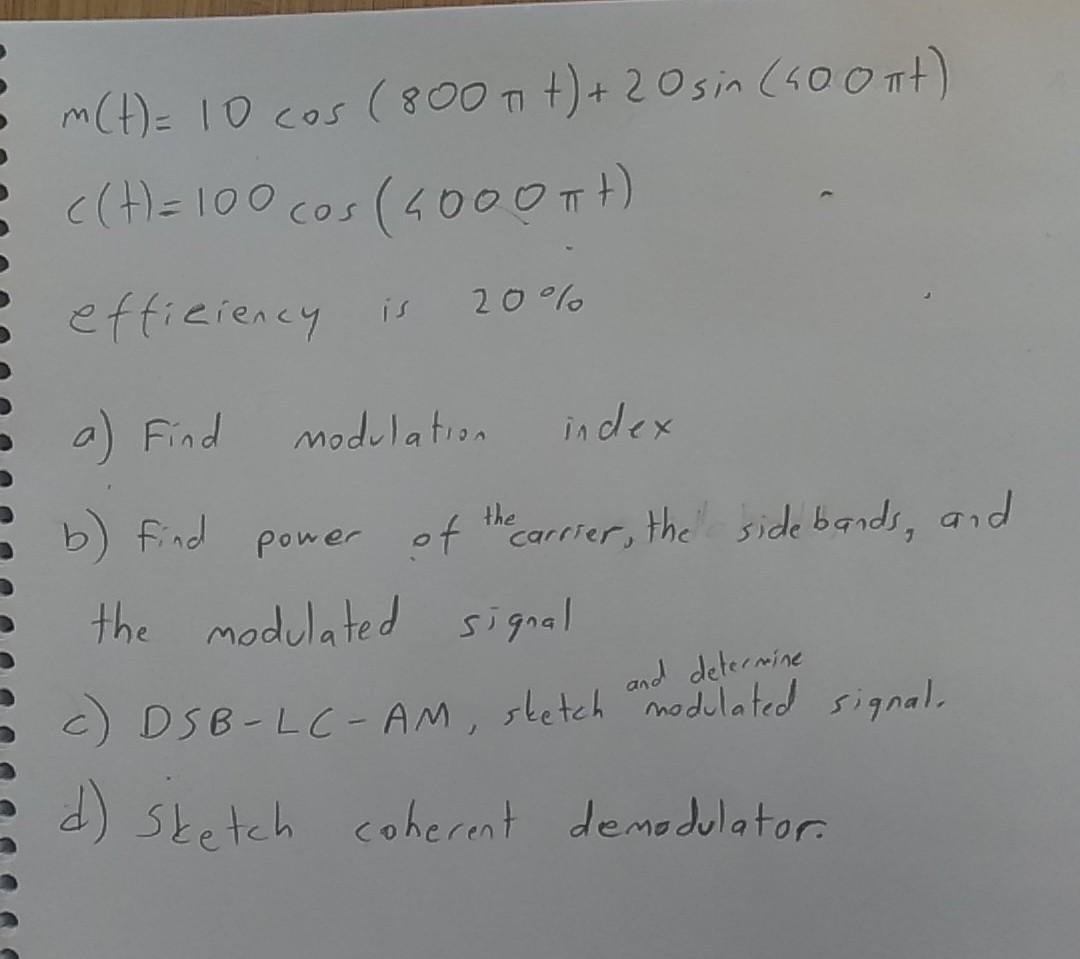 m(t)= 10 cos (800πt)+ 20 sin (400πt)
c(t)= 100 cos (4000πt)
efficiency is 20%
a) Find modulation index
b) Find power of the carrier, the side bands, and
the modulated signal
c) DSB-LC-AM, sketch and determine modulated signal.
d) Sketch coherent demodulator.